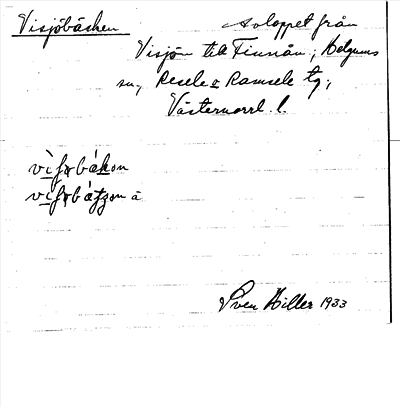 Visjöbäcken Avloppet från
Visjön till Finnån; Helgums
sn, Resele o Ramsele tg,
Västernorrl. l.
Sven Hiller 1933